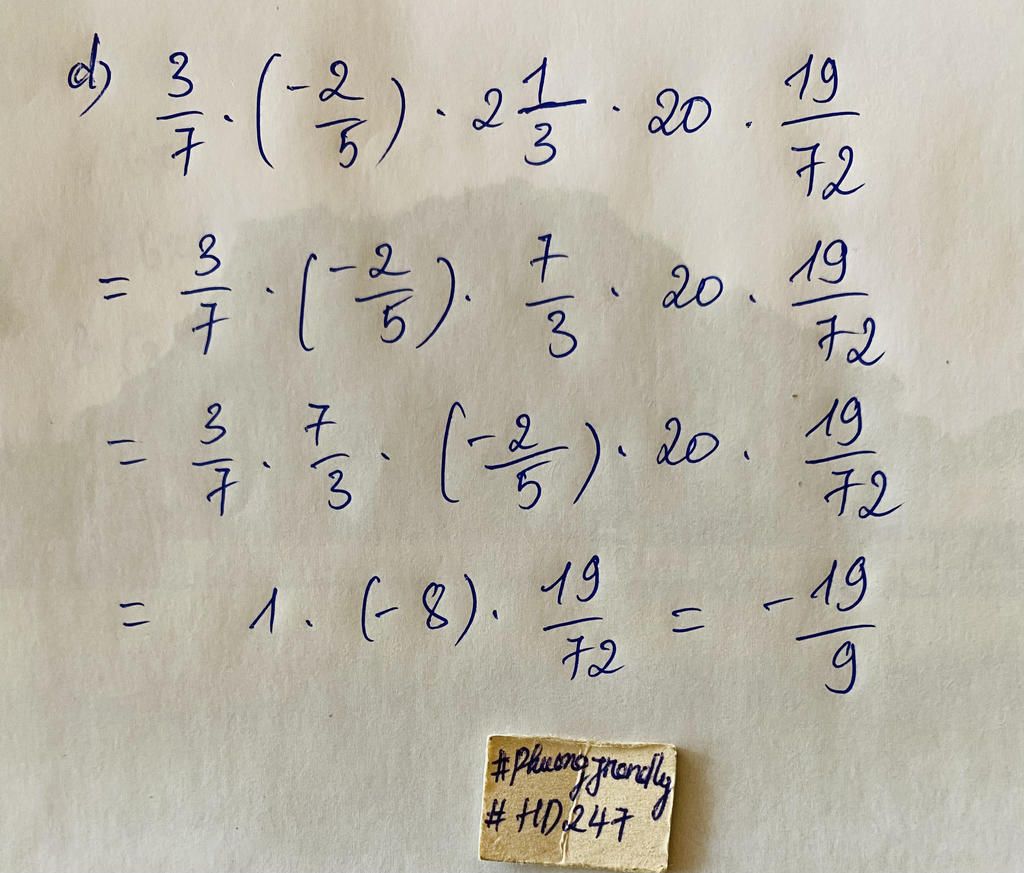 d) 3/7 . (-2/5) . 2 1/3 . 20 . 19/72
= 3/7 . (-2/5) . 7/3 . 20 . 19/72
= 3/7 . 7/3 . (-2/5) . 20 . 19/72
= 1 . (-8) . 19/72 = -19/9
#Phuongfrendly
#HD247